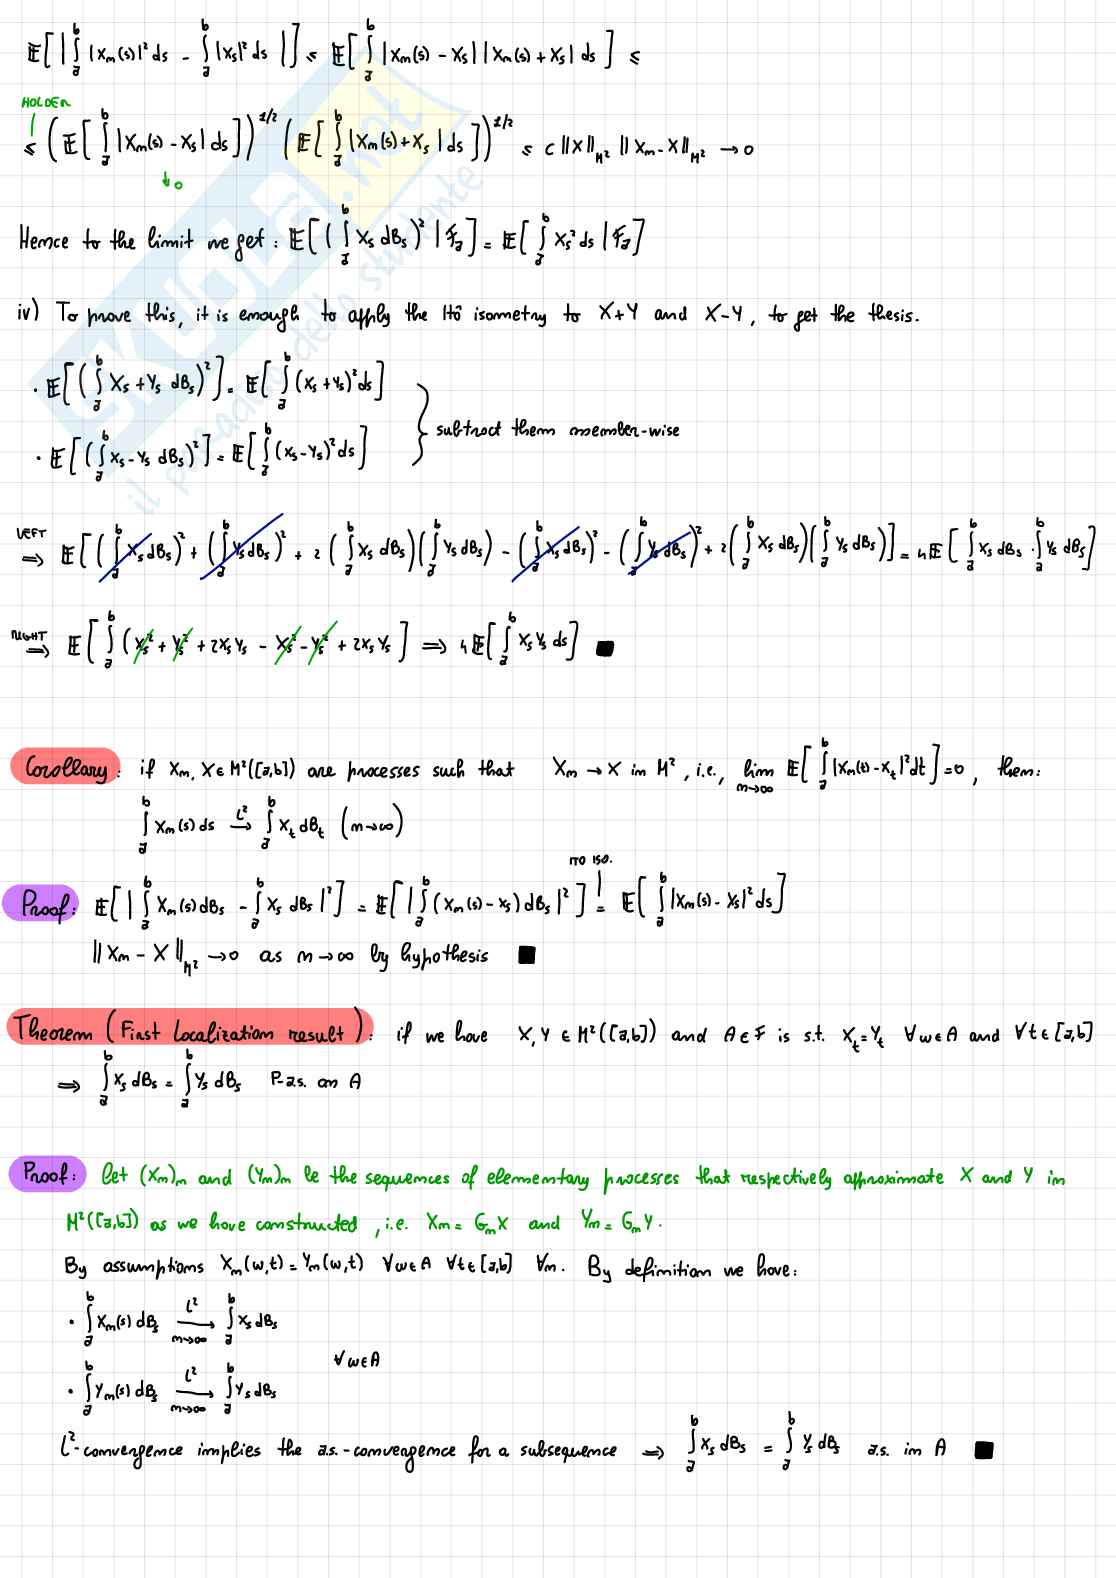 𝔼[ | ∫_a^b |X_m(s)|² ds - ∫_a^b |X_s|² ds | ] ≤ 𝔼[ ∫_a^b |X_m(s) - X_s| |X_m(s) + X_s| ds ] ≤
HOLDER
≤ ( 𝔼[ ∫_a^b |X_m(s) - X_s| ds ] )^{1/2} ( 𝔼[ ∫_a^b |X_m(s) + X_s| ds ] )^{1/2} ≤ C ||X||_{M²} ||X_m - X||_{M²} → 0
↓ 0
Hence to the limit we get: 𝔼[ ( ∫_a^b X_s dB_s )² | ℱ_a ] = 𝔼[ ∫_a^b X_s² ds | ℱ_a ]
iv) To prove this, it is enough to apply the Itô isometry to X+Y and X-Y, to get the thesis.
· 𝔼[ ( ∫_a^b X_s + Y_s dB_s )² ] = 𝔼[ ∫_a^b (X_s + Y_s)² ds ]
} subtract them member-wise
· 𝔼[ ( ∫_a^b X_s - Y_s dB_s )² ] = 𝔼[ ∫_a^b (X_s - Y_s)² ds ]
LEFT ⇒ 𝔼[ ( ∫_a^b X_s dB_s )² + ( ∫_a^b Y_s dB_s )² + 2 ( ∫_a^b X_s dB_s )( ∫_a^b Y_s dB_s ) - ( ∫_a^b X_s dB_s )² - ( ∫_a^b Y_s dB_s )² + 2 ( ∫_a^b X_s dB_s )( ∫_a^b Y_s dB_s ) ] = 4𝔼[ ∫_a^b X_s dB_s · ∫_a^b Y_s dB_s ]
RIGHT ⇒ 𝔼[ ∫_a^b ( X_s² + Y_s² + 2X_s Y_s - X_s² - Y_s² + 2X_s Y_s ] ⇒ 4𝔼[ ∫_a^b X_s Y_s ds ] ■
Corollary: if X_m, X ∈ M²([a,b]) are processes such that X_m → X in M², i.e., lim_{m→∞} 𝔼[ ∫_a^b |X_m(t) - X_t|² dt ] = 0, then:
∫_a^b X_m(s) ds →^{L²} ∫_a^b X_t dB_t (m→∞)
ITO ISO.
Proof: 𝔼[ | ∫_a^b X_m(s) dB_s - ∫_a^b X_s dB_s |² ] = 𝔼[ | ∫_a^b (X_m(s) - X_s) dB_s |² ] = 𝔼[ ∫_a^b |X_m(s) - X_s|² ds ]
||X_m - X||_{M²} → 0 as m→∞ by hypothesis ■
Theorem (First Localization result): if we have X, Y ∈ M²([a,b]) and A ∈ ℱ is s.t. X_t = Y_t ∀ω∈A and ∀t∈[a,b]
⇒ ∫_a^b X_s dB_s = ∫_a^b Y_s dB_s P-a.s. on A
Proof: let (X_m)_m and (Y_m)_m be the sequences of elementary processes that respectively approximate X and Y in
M²([a,b]) as we have constructed, i.e. X_m = G_m X and Y_m = G_m Y.
By assumptions X_m(ω,t) = Y_m(ω,t) ∀ω∈A ∀t∈[a,b] ∀m. By definition we have:
· ∫_a^b X_m(s) dB_s →^{L²}_{m→∞} ∫_a^b X_s dB_s
∀ω∈A
· ∫_a^b Y_m(s) dB_s →^{L²}_{m→∞} ∫_a^b Y_s dB_s
L²-convergence implies the a.s.-convergence for a subsequence ⇒ ∫_a^b X_s dB_s = ∫_a^b Y_s dB_s a.s. in A ■
SKUOLA.net
il paradiso dello studente